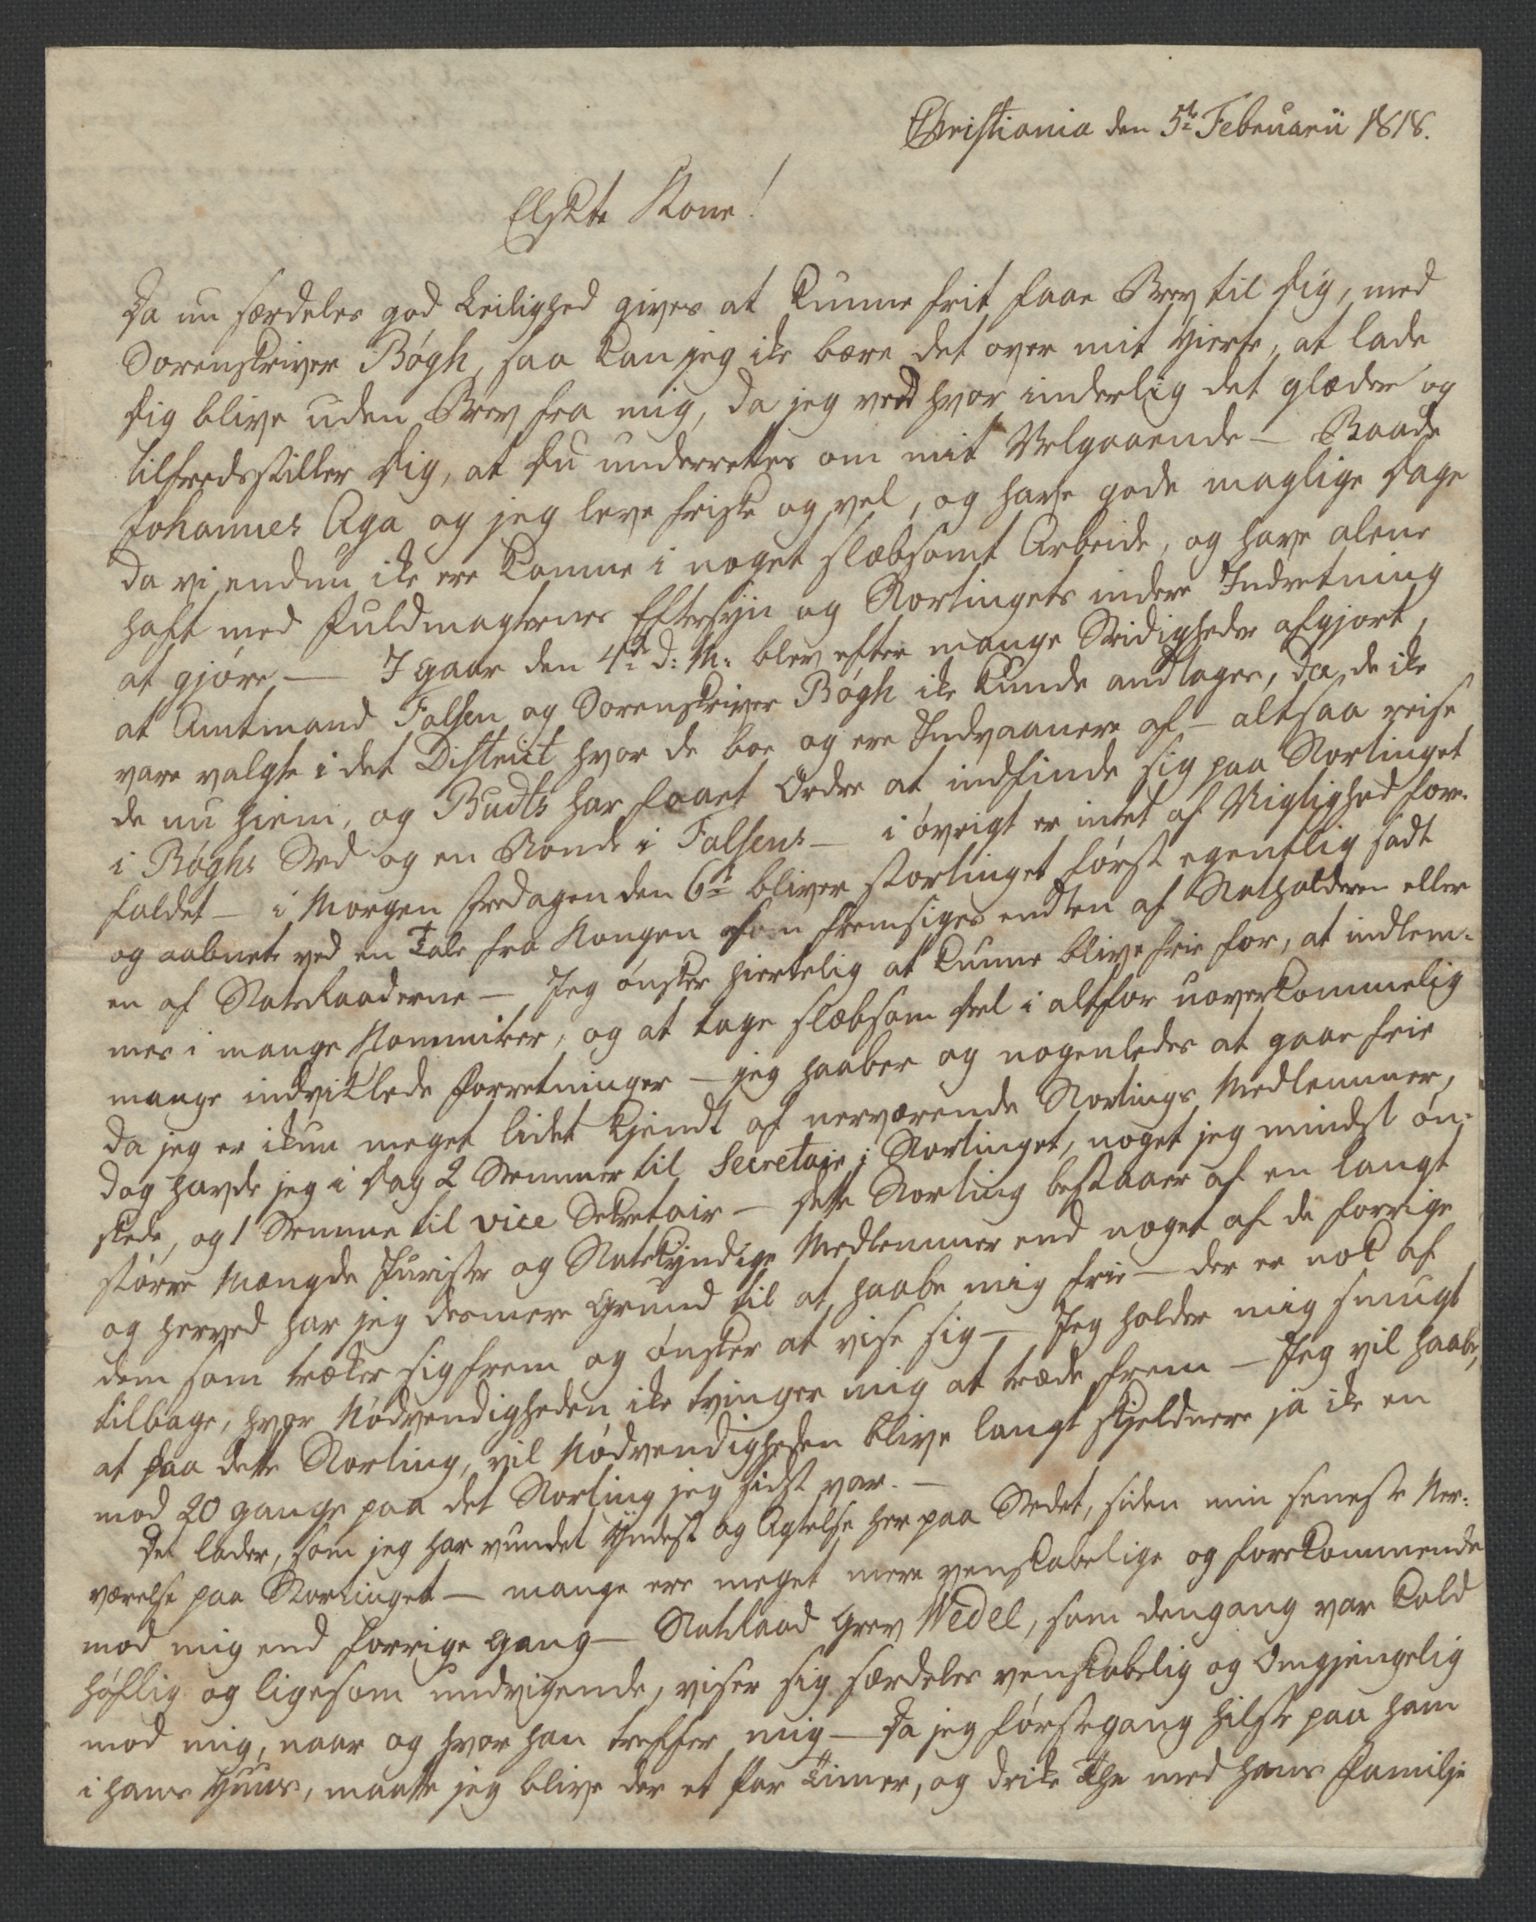 Christiania den 5te Februarii 1818.
Elskte Kone!
Da nu særdeles god Leilighed gives at kunne frit faae Brev til Dig, med
Sorenskriver Bógh, saa kan jeg ike bære det over mit Hierte, at lade
Dig blive uden Brev fra mig, da jeg ved hvor inderlig det glæder og
tilfredsstiller Dig, at Du underrettes om mit Velgaaende — Baade
Johannes Aga og jeg leve friske og vel, og have gode maglige Dage
da vi endnu ike ere komne i noget slæbsomt Arbeide, og have alene
haft med Fuldmagternes Eftersyn og Stortingets indere Indretning
at gjöre — I gaar den 4de d: M: blev efter mange Stridigheder afgjort,
at Amtmand Falsen og Sorenskriver Bógh ike kunde andtages, da de ike
vare valgte i det District hvor de boe og ere Indvaanere af — altsaa reise
de nu hiem, og Budts har faaet Ordre at indfinde sig paa Stortinget
i Bóghs Sted og en Bonde i Falsens — i óvrigt er intet af Vigtighed fore-
faldet — i Morgen Fredagen den 6te bliver Stortinget först egentlig sadt
og aabnet ved en Tale fra Kongen som fremsiges endten af Statholderen eller
en af Statsraaderne — Jeg ónsker hiertelig at kunne blive frie for, at indlem-
mes i mange Kommiteer, og at tage slæbsom Del i altfor uoverkommelig
mange indviklede Forretninger — jeg haaber og nogenledes at gaae frie
da jeg er ikun meget lidet kjendt af nerværende Stortings Medlemmer,
dog havde jeg i Dag 2 Stemmer til Secretair i Stortinget, noget jeg mindst ón-
skede, og 1 Stemme til vice Sekretair — dette Storting bestaaer af en langt
större Mængde Jurister og Statskyndige Medlemmer end noget af de forrige
og herved har jeg desmere Grund til at haabe mig frie — der er nok af
dem som trækes sig frem og ónsker at vise sig — Jeg holder mig smugt
tilbage, hvor Nódvendigheden ike tvinger mig at træde frem — Jeg vil haabe,
at paa dette Storting, vil Nódvendigheden blive langt skjeldnere ja ike en
mod 20 gange paa det Storting jeg sidst var. —
Det lader, som jeg har vundet Yndest og Agtelse her paa Stedet, siden min seneste Ner-
værelse paa Stortinget — mange ere meget mere venskabelige og forekommende
mod mig end forrige gang — Statsraad Grev Wedel, som dengang var kold
höflig og ligesom undvigende, viser sig særdeles venskabelig og Omgjengelig
mod mig, naar og hvor han treffer mig — Da jeg förstegang hilste paa ham
i hans Huus, maatte jeg blive der et Par Timer, og drike The med hans Familje